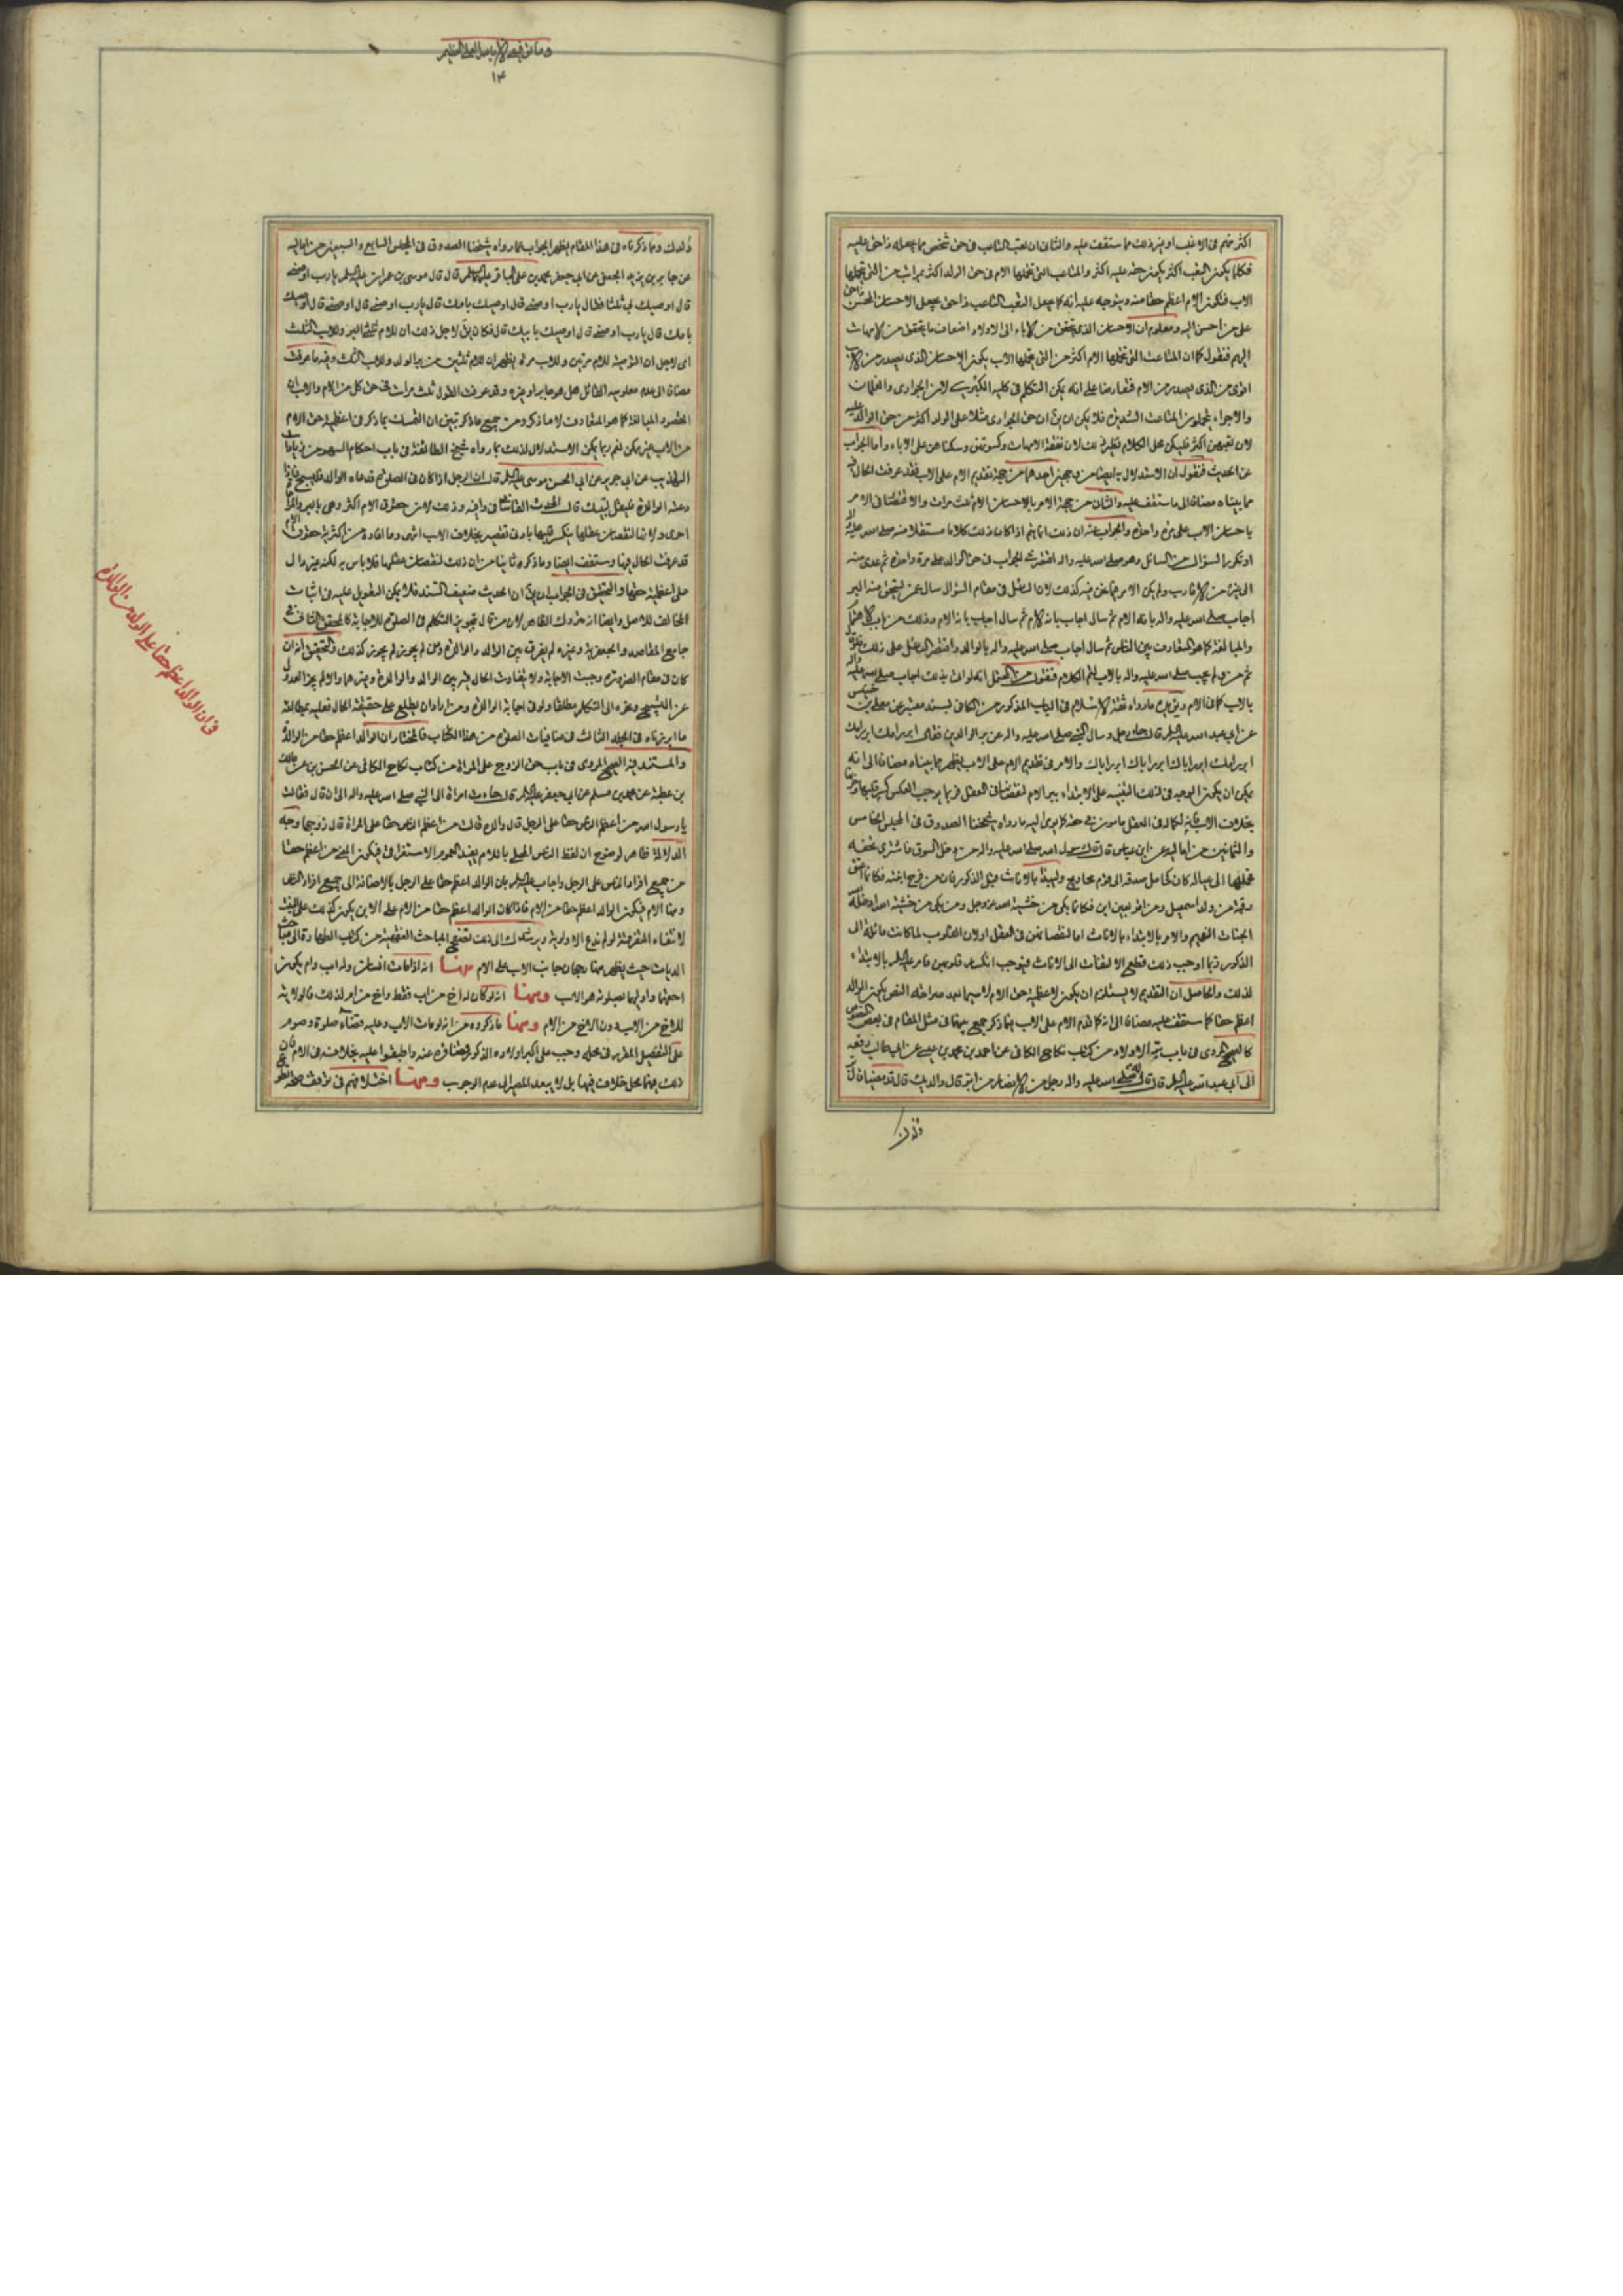 اكثر منهم فى الاغلب او غير ذلك مما ستقف عليه والثانى ان تعب التاعب فى حق شخص مما يجعله ذا حق عليه
فكلما يكون التعب اكثر يكون حقه عليه اكثر والمتاعب التى تحملها الام فى حق الولد اكثر بمراتب من التى تحملها
الاب فتكون الام اعظم حقا منه ويتوجه عليه انه كما يجعل التعب التاعب ذا حق يجعل الاحسان المحسن ذا حق
على من احسن اليه ومعلوم ان الاحسان الذى يتحقق من الاباء الى الاولاد اضعاف ما يتحقق من الامهات
اليهم فنقول كما ان المتاعب التى تحملها الام اكثر من التى تحملها الاب يكون الاحسان الذى يصدر من الاب
اقوى من الذى يصدر من الام فتعارضا على انه يمكن التكلم فى كلية الكبرى لان الجوارى والغلمان
والاجراء يتحملون المتاعب الشديدة فلا يمكن ان يق ان حق الجوارى مثلا على الولد اكثر من حق الوالد عليه
لان تعبهن اكثر فليكن محل الكلام نظير ذلك لان نفقة الامهات وكسوتهن وسكناهن على الاباء واما الجواب
عن الحديث فنقول ان الاستدلال به ايضا من وجهين احدهما من جهة تقديم الام على الاب فقد عرفت الحال فيه
مما بيناه مضافا الى ما ستقف عليه والثانى من جهة الامر بالاحسان الام ثلث مرات والاقتصار فى الامر
باحسان الاب على مرة واحدة والجواب عنه ان ذلك انما يتم اذا كان ذلك كلاما مستقلا منه صلى الله عليه واله
او تكرر السؤال من السائل وهو صلى الله عليه واله اقتصر فى الجواب فى حق الوالد على مرة واحدة ثم عدى منه
الى غيره من الاقارب ولم يكن الامر فيما نحن فيه كذلك لان السائل فى مقام السؤال سال عمن يتحقق منه البر
اجاب صلى الله عليه واله بانه الام ثم سال اجاب بانه الام ثم سال اجاب بانه الام وذلك من باب الاهتمام
والمبالغة كما هو المتعارف بين الناس ثم سال اجاب صلى الله عليه واله بالوالد واقتصر السائل على ذلك
بالاب كما فى الام
عن ابى عبد الله عليه السلم قال جاء رجل وسال النبى صلى الله عليه واله عن بر الوالدين فقال ابرر امك ابرر امك
ابرر امك ابرر اباك ابرر اباك ابرر اباك والامر فى تقديم الام على الاب يظهر مما بيناه مضافا الى انه
بخلاف الاب فانه لكماله فى العقل مامون فى حقه كما يرى اليه ما رواه شيخنا الصدوق فى المجلس الخامس
والثمانين من اماليه عن ابن عباس قال قال رسول الله صلى الله عليه واله من دخل السوق فاشترى تحفة
فحملها الى عياله كان كحامل صدقة الى قوم محاويج وليبدأ بالاناث قبل الذكور فان من فرح ابنته فكانما اعتق
رقبة من ولد اسمعيل ومن اقر بعين ابن فكانما بكى من خشية الله عز وجل ومن بكى من خشية الله ادخله
الجنات النعيم والامر بالابتداء بالاناث اما لنقصانهن فى العقل او لان القلوب لما كانت مائلة الى
الذكور ربما اوجب ذلك قطع الالتفات الى الاناث فيوجب انكسار قلوبهن فامر عليه السلم بالابتداء
لذلك والحاصل ان التقديم لا يستلزم ان يكون لاعظمية حق الام لا سيما بعد صراحة النص بكون الوالد
اعظم حقا كما ستقف عليه مضافا الى انه كما قدم الام على الاب فيما ذكر جمع بينهما فى مثل المقام فى بعض النصوص
كالصحيح المروى فى باب بر الاولاد من كتاب نكاح الكافى عن احمد بن محمد بن عيسى عن ابى طالب رفعه
الى ابى عبد الله عليه السلم قال قال للنبى صلى الله عليه واله رجل من الانصار من ابر قال والديك قال قد مضيا قال
ولدك
وما توفيقى الا بالله العلى العظيم
١٤
ولدك ومما ذكرناه فى هذا المقام يظهر الجواب عما رواه شيخنا الصدوق فى المجلس السابع والسبعين من اماليه
عن جابر بن يزيد الجعفى عن ابى جعفر محمد بن على الباقر عليهما السلم قال قال موسى بن عمران عليه السلم يا رب اوصنى
قال اوصيك بى ثلثا فقال يا رب اوصنى قال اوصيك بامك قال يا رب اوصنى قال اوصيك
بامك قال يا رب اوصنى قال اوصيك بابيك قال فكان يق لاجل ذلك ان للام ثلثى البر وللاب الثلث
اى لاجل ان التوصية للام مرتين وللاب مرة يظهر ان للام ثلثين من بر الولد وللاب الثلث وفيه ما عرفت
مضافا الى عدم معلومية القائل هل هو جابر او غيره وقد عرفت القول ثلث مرات فى حق كل من الام والاب ان
المقصود المبالغة كما هو المتعارف لا ما ذكر ومن جميع ما ذكر تبين ان التمسك بما ذكر فى اعظمية حق الام
من الاب غير ممكن نعم ربما يمكن الاستدلال لذلك بما رواه شيخ الطائفة فى باب احكام السهو من زيادات
التهذيب عن ابى جرير عن ابى الحسن موسى عليه السلم قال ان الرجل اذا كان فى الصلوة فدعاه الوالد فليسبح فاذا
دعته الوالدة فليقل لبيك قال المحدث القاسانى فى وافيه وذلك لان حقوق الام اكثر وهى بالبر
احرى ولانها لنقصان عقلها ينكسر قلبها بادنى تقصير بخلاف الاب انتهى وما افاده من اكثرية حقوق الام
قد عرفت الحال فيها وستقف ايضا وما ذكره ثانيا من ان ذلك لنقصان عقلها فلا باس به لكنه غير دال
على اعظمية حقها والتحقيق فى الجواب ان يق ان الحديث ضعيف السند فلا يمكن التعويل عليه فى اثبات
المخالف للاصل وايضا انه متروك الظاهر لان من قال بتجويز التكلم فى الصلوة للاجابة كالمحقق الثانى فى
جامع المقاصد والجعفرية وغيره لم يفرق بين الوالد والوالدة ومن لم يجوز لم يجوز كذلك والتحقيق انه ان
كان فى مقام الضرورة وجبت الاجابة ولا يتفاوت الحال فيه بين الوالد والوالدة وغيرهما والا لم يجز العدول
عن التسبيح وغيره الى التكلم مطلقا ولو فى اجابة الوالدة ومن اراد ان يطلع على حقيقة الحال فعليه بمطالعة
ما ابرزناه فى المجلد الثالث فى منافيات الصلوة من هذا الكتاب فالمختار ان الوالد اعظم حقا من الوالدة
والمستند فيه الصحيح المروى فى باب حق الزوج على المراة من كتاب نكاح الكافى عن الحسن بن محبوب عن مالك
بن عطية عن محمد بن مسلم عن ابى جعفر عليه السلم قال جاءت امراة الى النبى صلى الله عليه واله الى ان قال فقالت
يا رسول الله من اعظم الناس حقا على الرجل قال والده قالت من اعظم الناس حقا على المراة قال زوجها وجه
الدلالة ظاهر لوضوح ان لفظ الناس المحلى باللام يفيد العموم الاستغراقى فيكون المعنى من اعظم حقا
من جميع افراد الناس على الرجل واجاب عليه السلم بان الوالد اعظم حقا على الرجل بالاضافة الى جميع افراد الناس
ومنها الام فيكون الوالد اعظم حقا من الام فاذا كان الوالد اعظم حقا من الام على الابن يكون كذلك على البنت
لانتفاء التفرقة لو لم ندع الاولوية ويرشدك الى ذلك تصفح المباحث الفقهية من كتاب الطهارة الى مباحث
الديات حيث يظهر منها رجحان جانب الاب على الام منها انه اذا مات انسان وله اب وام يكون
احقهما واوليهما بصلوته هو الاب ومنها انه لو كان له اخ من اب فقط واخ من ام لذلك فالولاية
للاخ من الاب دون الاخ من الام ومنها ما ذكروه من انه لو مات الاب وعليه قضاء صلوة وصوم
على التفصيل المقرر فى محله وجب على اكبر اولاده الذكور قضاؤه عنه واطبقوا عليه بخلافه فى الام فان
ذلك فيها محل خلاف فيها بل لا يبعد المصير الى عدم الوجوب ومنها اختلافهم فى توقف صحة نذر
فى ان الوالد اعظم حقا على الولد من الوالدة